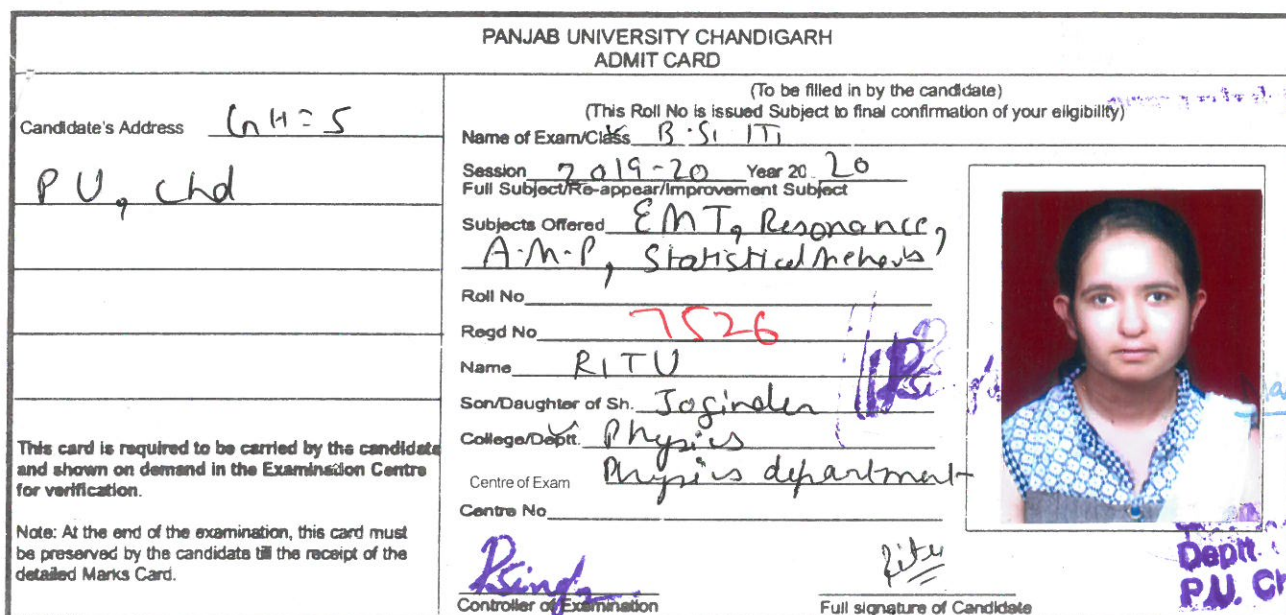 PANJAB UNIVERSITY CHANDIGARH
ADMIT CARD
Candidate's Address GH-5
PU, Chd
This card is required to be carried by the candidate
and shown on demand in the Examination Centre
for verification.
Note: At the end of the examination, this card must
be preserved by the candidate till the receipt of the
detailed Marks Card.
(To be filled in by the candidate)
(This Roll No is issued Subject to final confirmation of your eiligibility)
Name of Exam/Class
Session 2019-20 Year 20 20
Full Subject/Re-appear/Improvement Subject
Subjects Offered EMT, Resonance,
A.M.P, Statistical
Roll No
Regd No 7526
Name RITU
Son/Daughter of Sh. Joginder
College/Deptt. Physics
Centre of Exam Physics department
Centre No
PSingh
Controller of Examination
Ritu
Full signature of Candidate
Deptt.
P.U. Ch